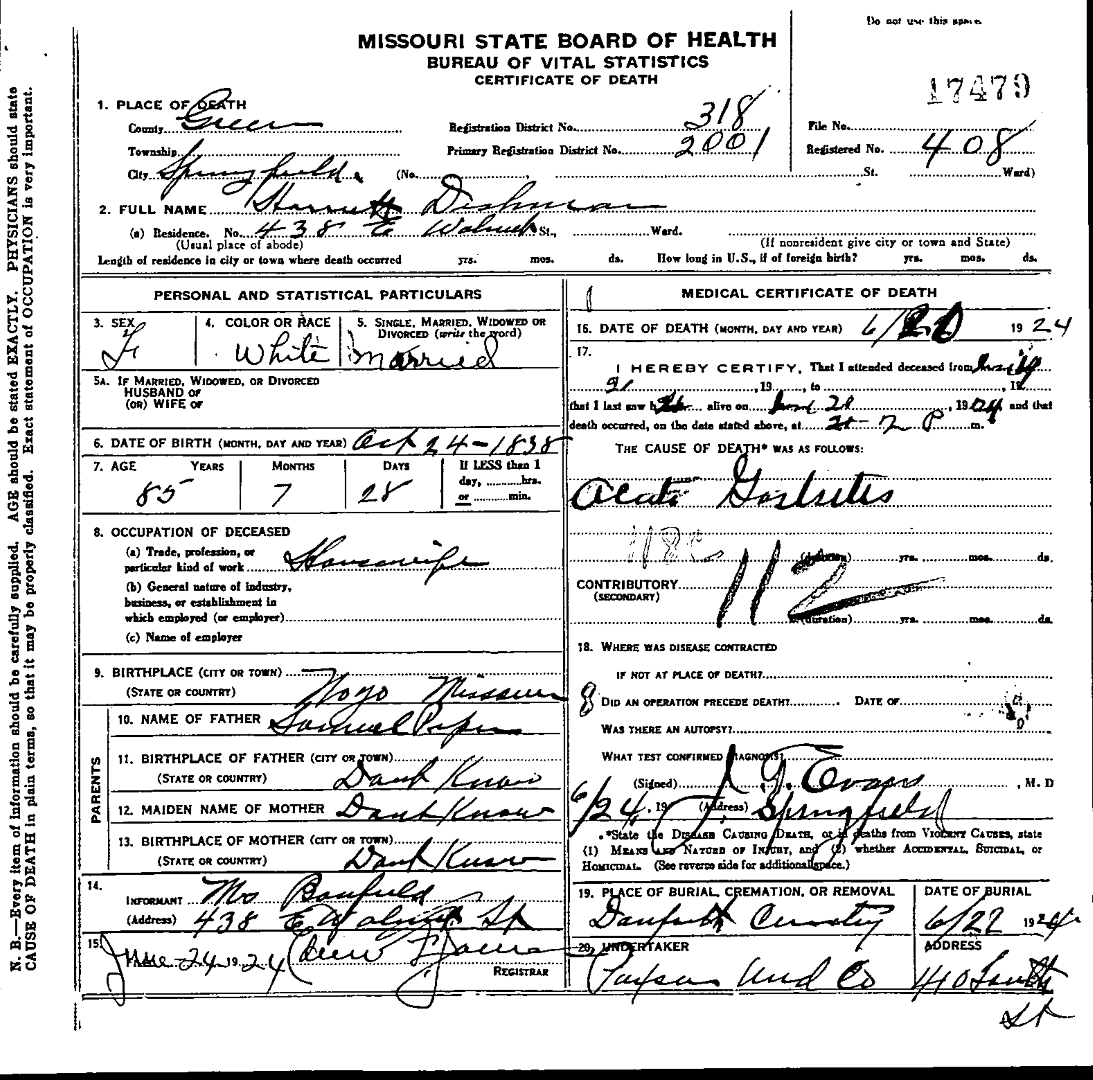 Do not use this space.
MISSOURI STATE BOARD OF HEALTH
BUREAU OF VITAL STATISTICS
CERTIFICATE OF DEATH
17479
1. PLACE OF DEATH
County Green Registration District No. 318 File No.
Township Primary Registration District No. 2001 Registered No. 408
City Springfield. (No. St. Ward)
2. FULL NAME Harriett Dishman
(a) Residence. No. 438 E Walnut St., Ward.
(Usual place of abode) (If nonresident give city or town and State)
Length of residence in city or town where death occurred yrs. mos. ds. How long in U.S., if of foreign birth? yrs. mos. ds.
PERSONAL AND STATISTICAL PARTICULARS
3. SEX 4. COLOR OR RACE 5. SINGLE, MARRIED, WIDOWED OR DIVORCED (write the word)
F White married
5A. IF MARRIED, WIDOWED, OR DIVORCED
HUSBAND OF
(OR) WIFE OF
6. DATE OF BIRTH (MONTH, DAY AND YEAR) Oct 24-1838
7. AGE YEARS MONTHS DAYS If LESS than 1
day, hrs.
or min.
85 7 28
8. OCCUPATION OF DECEASED
(a) Trade, profession, or
particular kind of work Housewife
(b) General nature of industry,
business, or establishment in
which employed (or employer)
(c) Name of employer
9. BIRTHPLACE (CITY OR TOWN) Nogo Missouri
(STATE OR COUNTRY)
PARENTS
10. NAME OF FATHER Samuel
11. BIRTHPLACE OF FATHER (CITY OR TOWN)
(STATE OR COUNTRY) Dont Know
12. MAIDEN NAME OF MOTHER Dont Know
13. BIRTHPLACE OF MOTHER (CITY OR TOWN)
(STATE OR COUNTRY) Dont Know
14.
INFORMANT Mrs Banfield
(Address) 438 E Walnut St
15.
June 24 1924
REGISTRAR
MEDICAL CERTIFICATE OF DEATH
16. DATE OF DEATH (MONTH, DAY AND YEAR) 6/20 1924
17.
I HEREBY CERTIFY, That I attended deceased from
, 19 , to , 19
that I last saw h alive on June 20, 1924 and that
death occurred, on the date stated above, at 2 P m.
THE CAUSE OF DEATH* WAS AS FOLLOWS:
Acute Gastritis
(duration) yrs. mos. ds.
112
CONTRIBUTORY
(SECONDARY)
(duration) yrs. mos. ds.
18. WHERE WAS DISEASE CONTRACTED
IF NOT AT PLACE OF DEATH?
8 DID AN OPERATION PRECEDE DEATH? DATE OF
WAS THERE AN AUTOPSY?
WHAT TEST CONFIRMED DIAGNOSIS?
(Signed) Evans, M. D
6/24, 19 (Address) Springfield
*State the DISEASE CAUSING DEATH, or in deaths from VIOLENT CAUSES, state
(1) MEANS AND NATURE OF INJURY, and (2) whether ACCIDENTAL, SUICIDAL, or
HOMICIDAL. (See reverse side for additional space.)
19. PLACE OF BURIAL, CREMATION, OR REMOVAL DATE OF BURIAL
Danforth Cemetery 6/22 1924
20. UNDERTAKER ADDRESS
Paxson Und Co 410 South
St
N. B.—Every item of information should be carefully supplied. AGE should be stated EXACTLY. PHYSICIANS should state
CAUSE OF DEATH in plain terms, so that it may be properly classified. Exact statement of OCCUPATION is very important.